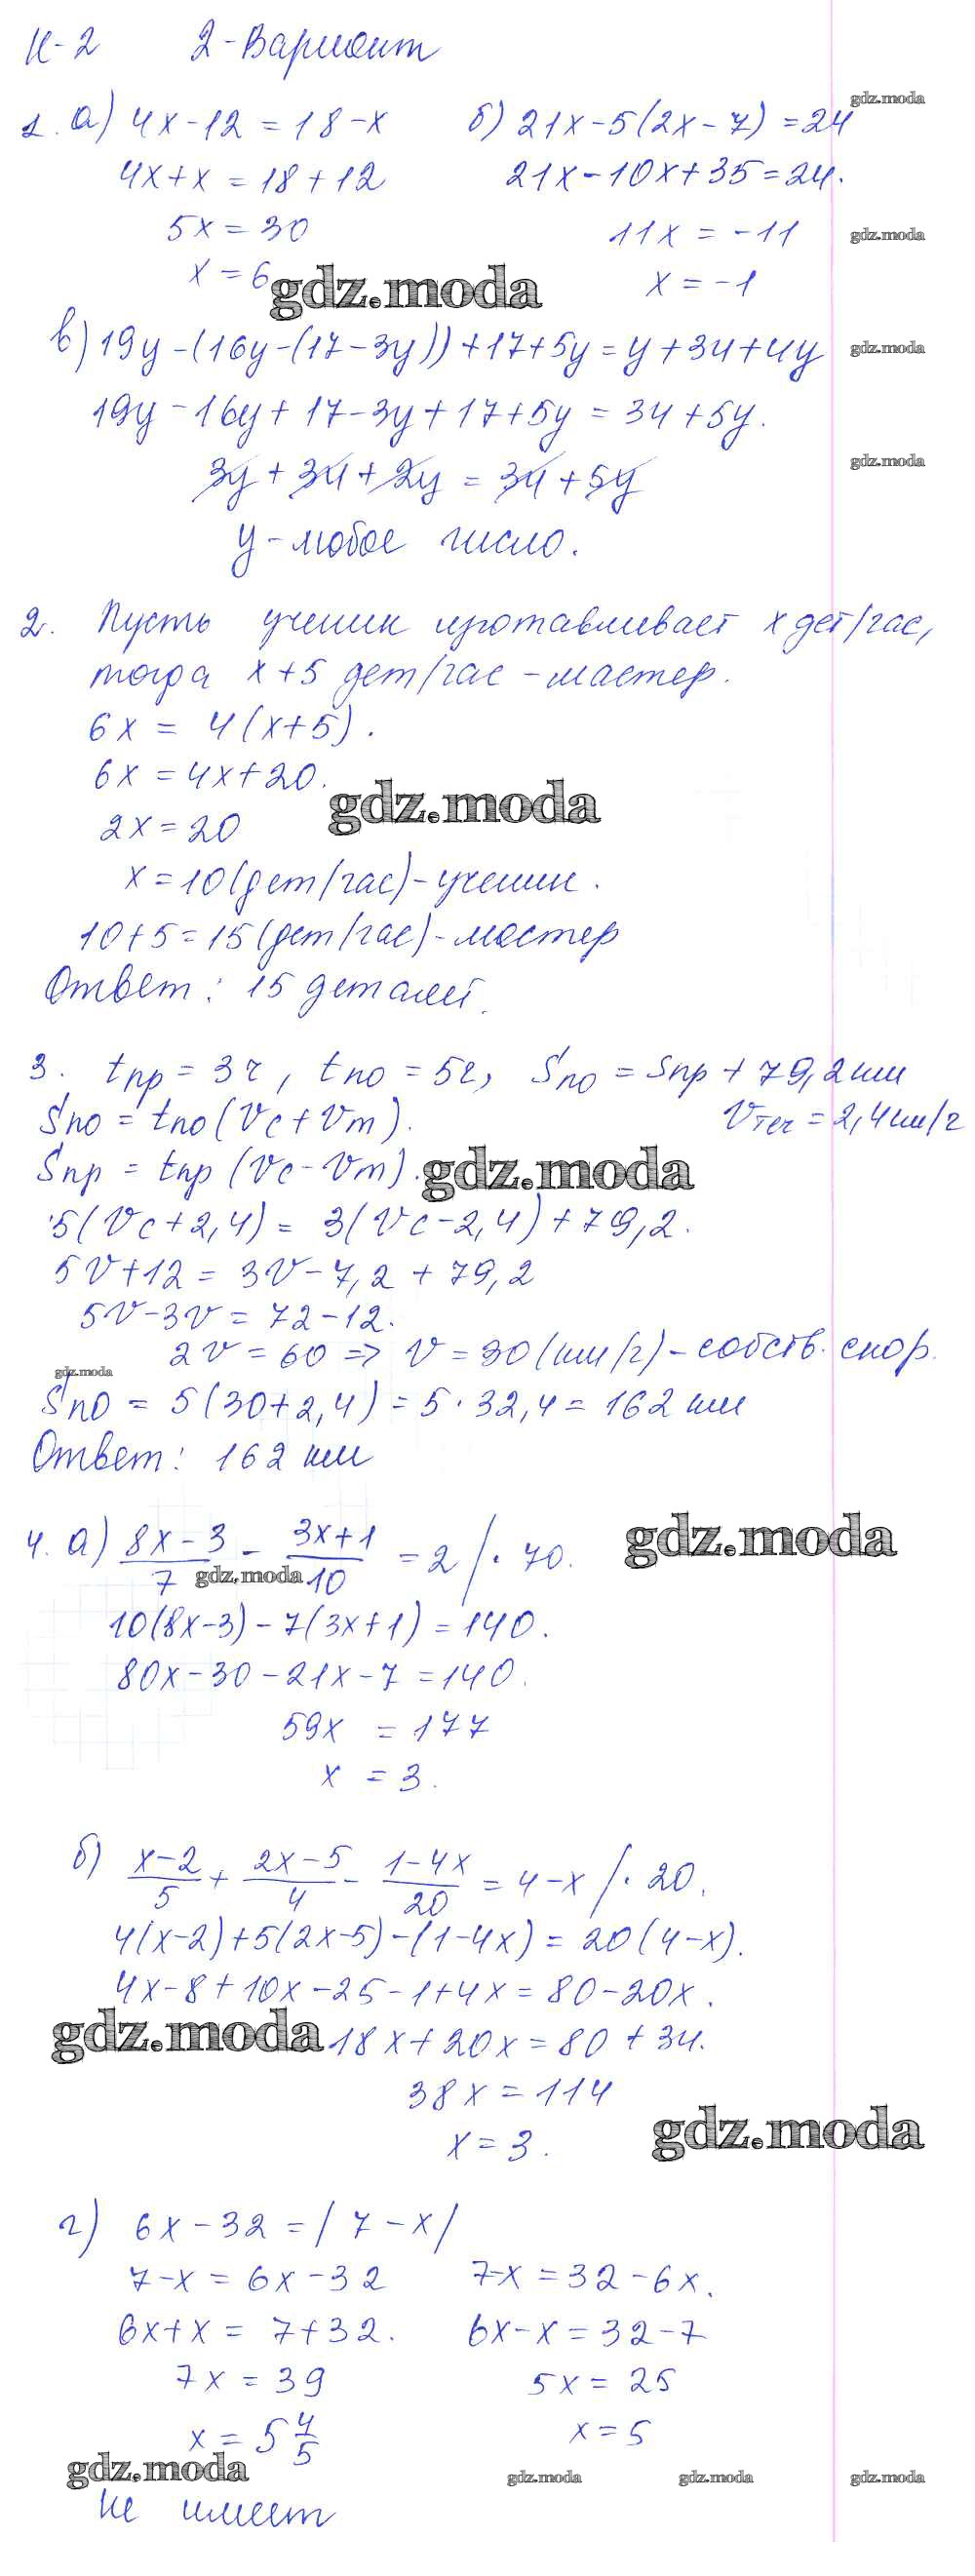 К-2 2-Вариант
1. а) 4x-12=18-x б) 21x-5(2x-7)=24
gdz.moda
4x+x=18+12 21x-10x+35=24.
5x=30 11x=-11
gdz.moda
x=6 x=-1
gdz.moda
в) 19y-(16y-(17-3y))+17+5y=y+34+4y
gdz.moda
19y-16y+17-3y+17+5y=34+5y.
gdz.moda
3y+34+2y=34+5y
y-любое число.
2. Пусть ученик изготавливает x дет/час,
тогда x+5 дет/час - мастер.
6x=4(x+5).
6x=4x+20.
gdz.moda
2x=20
x=10(дет/час)-ученик.
10+5=15(дет/час)-мастер
Ответ: 15 деталей.
3. tпр=3ч, tпо=5ч, Sпо=Sпр+79,2км
Sпо=tпо(Vс+Vт). Vтеч=2,4км/ч
Sпр=tпр(Vс-Vт).
gdz.moda
5(Vс+2,4)=3(Vс-2,4)+79,2.
5V+12=3V-7,2+79,2
5V-3V=72-12.
2V=60 => V=30(км/ч)-собств. скор.
gdz.moda
Sпо=5(30+2,4)=5·32,4=162км
Ответ: 162 км
4. а) (8x-3)/7 - (3x+1)/10 = 2 /·70.
gdz.moda
gdz.moda
10(8x-3)-7(3x+1)=140.
80x-30-21x-7=140.
59x=177
x=3.
б) (x-2)/5 + (2x-5)/4 - (1-4x)/20 = 4-x /·20.
4(x-2)+5(2x-5)-(1-4x)=20(4-x).
4x-8+10x-25-1+4x=80-20x.
gdz.moda
18x+20x=80+34.
38x=114
gdz.moda
x=3.
г) 6x-32=|7-x|
7-x=6x-32 7-x=32-6x.
6x+x=7+32. 6x-x=32-7
7x=39 5x=25
x=5 4/5 x=5
gdz.moda
gdz.moda gdz.moda gdz.moda
Не имеет